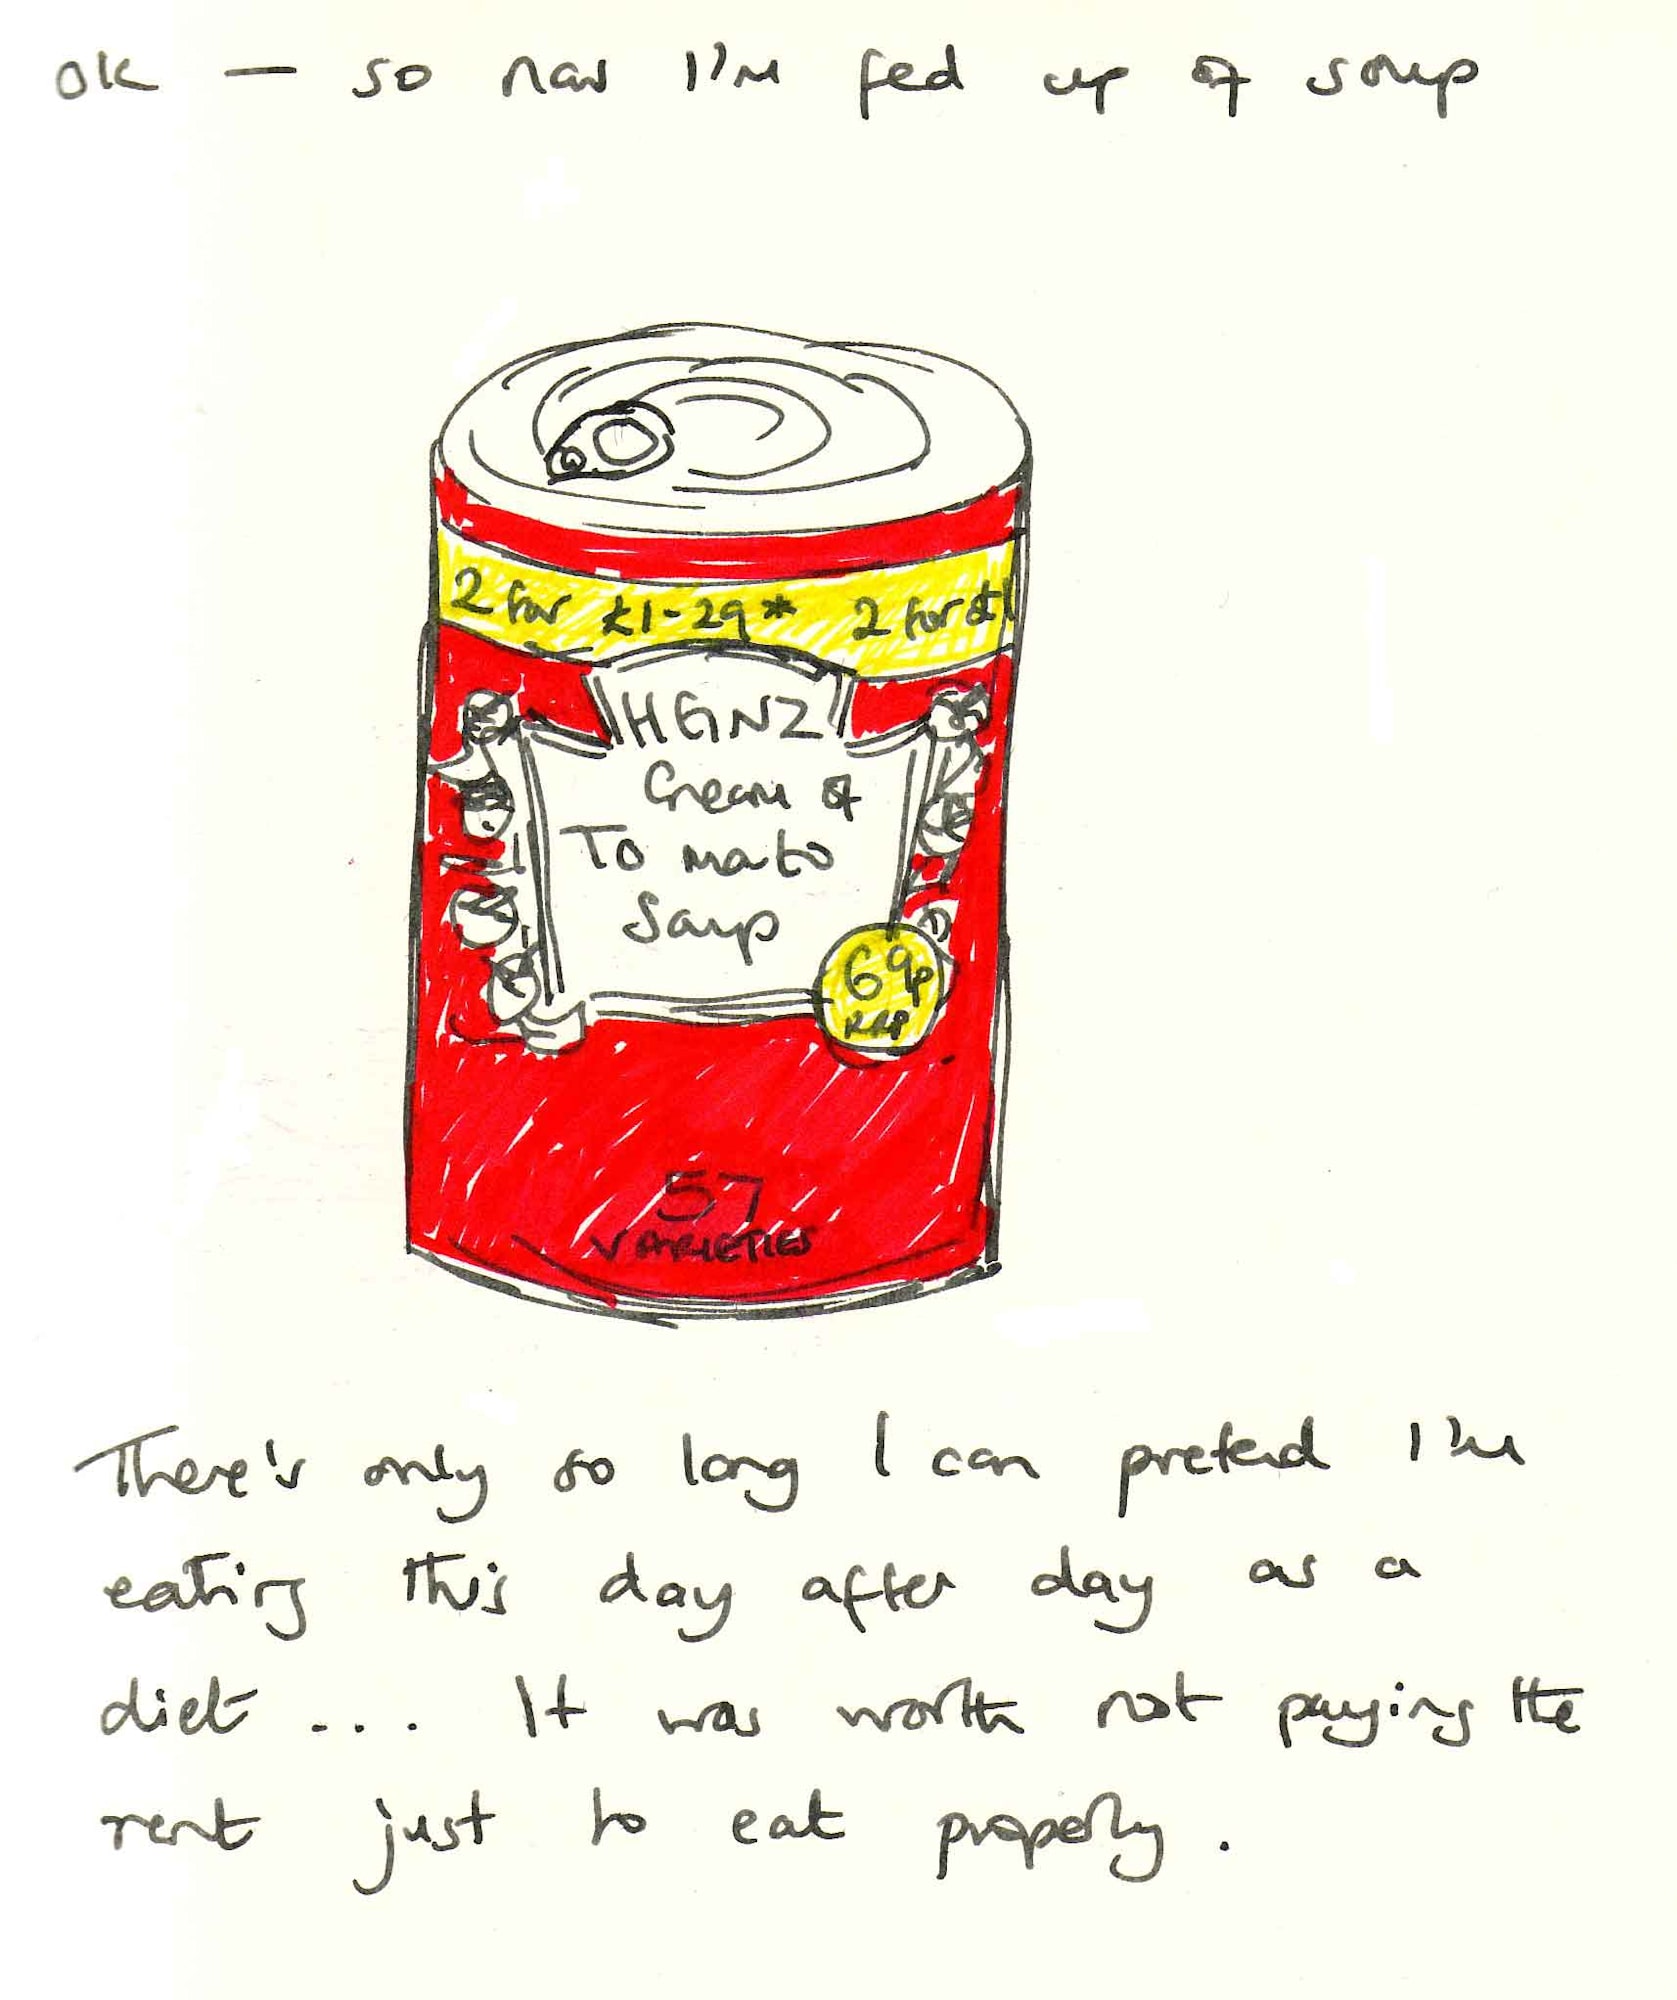 OK — so now I'm fed up of soup
2 for £1-29* 2 for £1
HEINZ
Cream of
Tomato
Soup
69p
RRP
57
VARIETIES
There's only so long I can pretend I'm
eating this day after day as a
diet .... It was worth not paying the
rent just to eat properly.